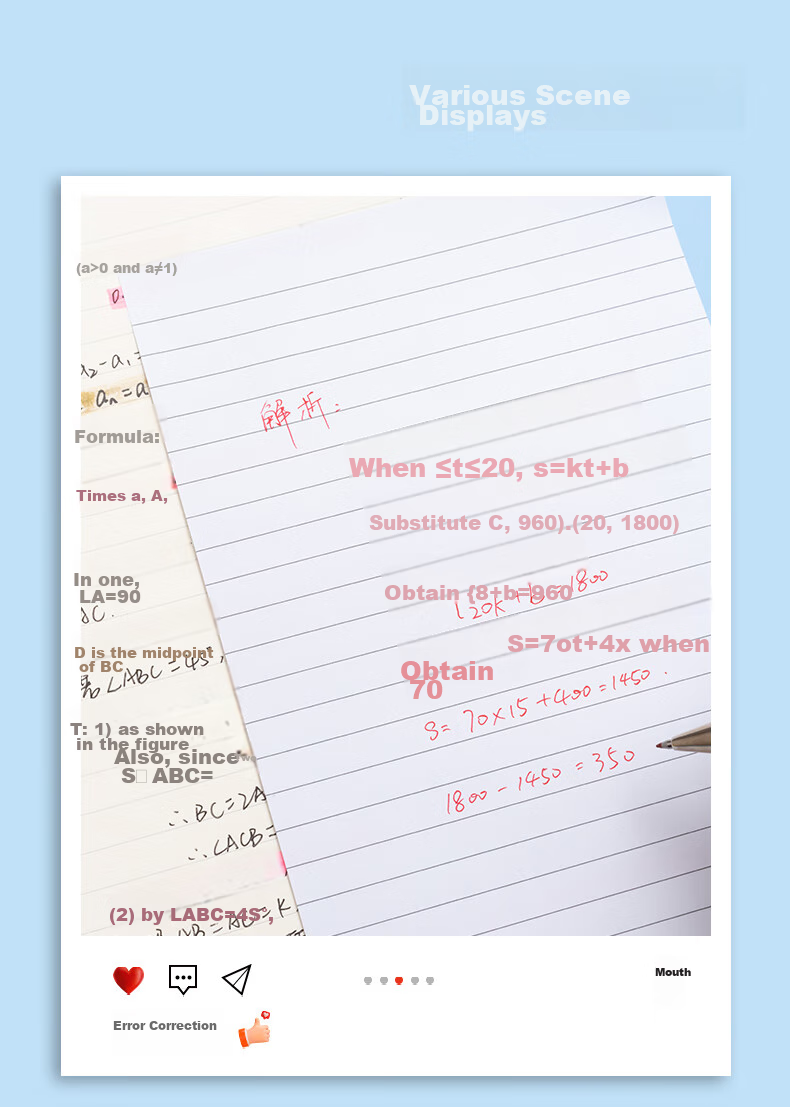 Various Scene
Displays
(a>0 and a≠1)
a₂-a₁=
aₙ=a
解析:
Formula:
When ≤t≤20, s=kt+b
Times a, A,
Substitute C, 960).(20, 1800)
In one,
LA=90
Obtain {8+b=960
20k+b=1800
D is the midpoint
of BC
∠ABC=45°,
S=7ot+4x when
Obtain
70
S= 70×15+400=1450.
T: 1) as shown
in the figure
Also, since
S□ ABC=
1800-1450=350
∴BC=2A
∴∠ACB=
(2) by LABC=4S°,
Mouth
Error Correction